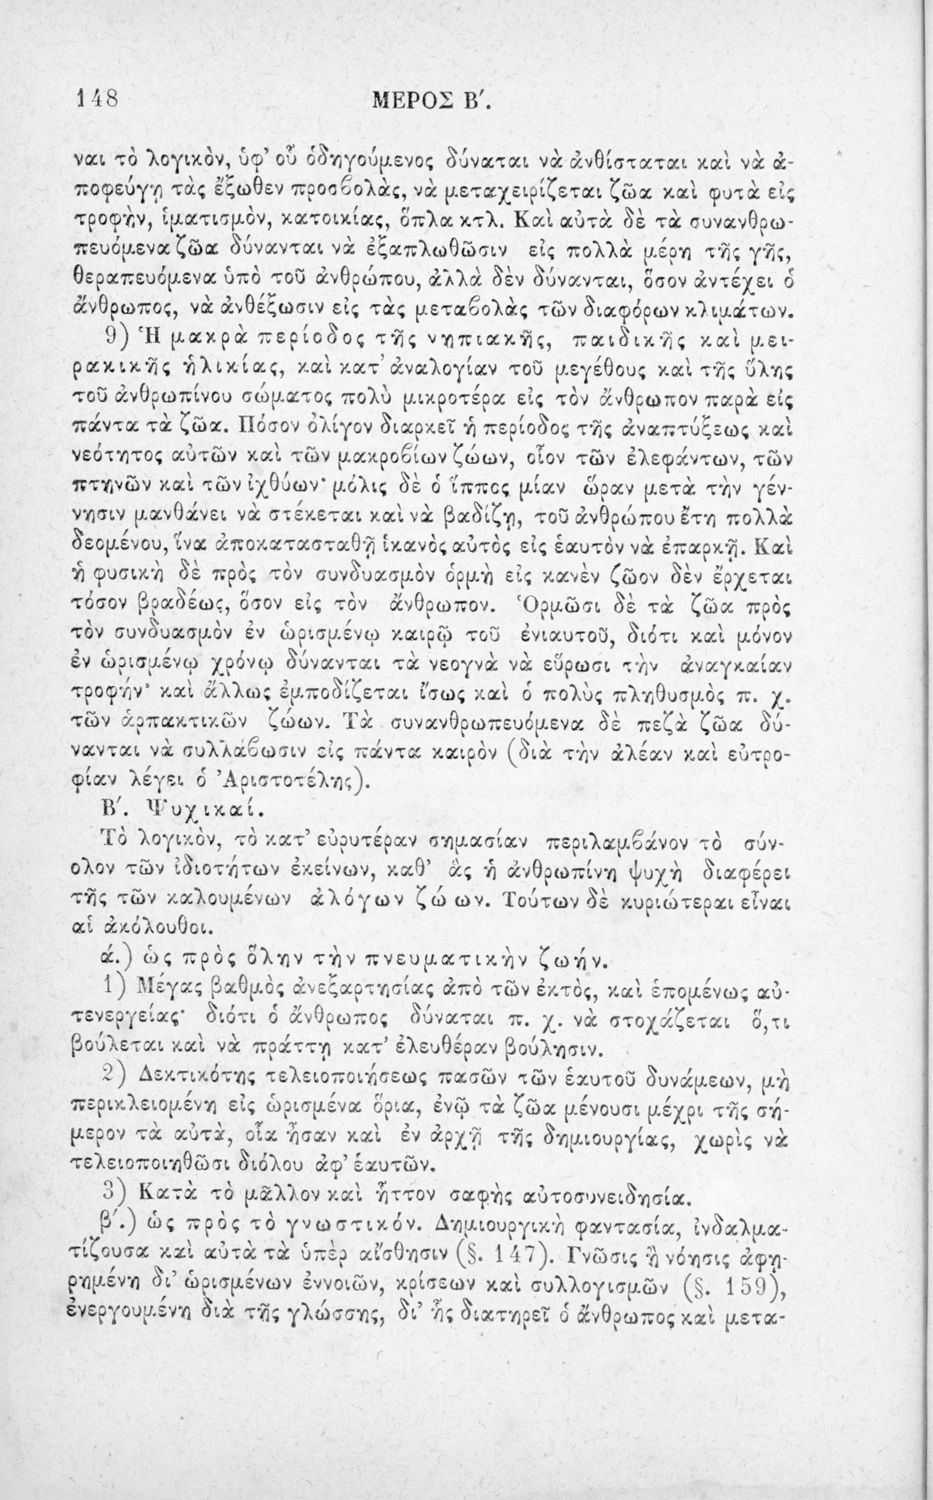 148 ΜΕΡΟΣ Β΄.
ναι τὸ λογικὸν, ὑφ’ οὗ ὁδηγούμενος δύναται νὰ ἀνθίσταται καὶ νὰ ἀ-
ποφεύγῃ τὰς ἔξωθεν προσϐολὰς, νὰ μεταχειρίζεται ζῶα καὶ φυτὰ εἰς
τροφὴν, ἱματισμὸν, κατοικίας, ὅπλα κτλ. Καὶ αὐτὰ δὲ τὰ συνανθρω-
πευόμενα ζῶα δύνανται νὰ ἐξαπλωθῶσιν εἰς πολλὰ μέρη τῆς γῆς,
θεραπευόμενα ὑπὸ τοῦ ἀνθρώπου, ἀλλὰ δὲν δύνανται, ὅσον ἀντέχει ὁ
ἄνθρωπος, νὰ ἀνθέξωσιν εἰς τὰς μεταϐολὰς τῶν διαφόρων κλιμάτων.
9) Ἡ μακρὰ περίοδος τῆς νηπιακῆς, παιδικῆς καὶ μει-
ρακικῆς ἡλικίας, καὶ κατ’ ἀναλογίαν τοῦ μεγέθους καὶ τῆς ὕλης
τοῦ ἀνθρωπίνου σώματος πολὺ μικροτέρα εἰς τὸν ἄνθρωπον παρὰ εἰς
πάντα τὰ ζῶα. Πόσον ὀλίγον διαρκεῖ ἡ περίοδος τῆς ἀναπτύξεως καὶ
νεότητος αὐτῶν καὶ τῶν μακροϐίων ζώων, οἷον τῶν ἐλεφάντων, τῶν
πτηνῶν καὶ τῶν ἰχθύων· μόλις δὲ ὁ ἵππος μίαν ὥραν μετὰ τὴν γέν-
νησιν μανθάνει νὰ στέκεται καὶ νὰ βαδίζῃ, τοῦ ἀνθρώπου ἔτη πολλὰ
δεομένου, ἵνα ἀποκατασταθῇ ἱκανὸς αὐτὸς εἰς ἑαυτὸν νὰ ἐπαρκῇ. Καὶ
ἡ φυσικὴ δὲ πρὸς τὸν συνδυασμὸν ὁρμὴ εἰς κανὲν ζῶον δὲν ἔρχεται
τόσον βραδέως, ὅσον εἰς τὸν ἄνθρωπον. Ὁρμῶσι δὲ τὰ ζῶα πρὸς
τὸν συνδυασμὸν ἐν ὡρισμένῳ καιρῷ τοῦ ἐνιαυτοῦ, διότι καὶ μόνον
ἐν ὡρισμένῳ χρόνῳ δύνανται τὰ νεογνὰ νὰ εὕρωσι τὴν ἀναγκαίαν
τροφήν· καὶ ἄλλως ἐμποδίζεται ἴσως καὶ ὁ πολὺς πληθυσμὸς π. χ.
τῶν ἁρπακτικῶν ζώων. Τὰ συνανθρωπευόμενα δὲ πεζὰ ζῶα δύ-
νανται νὰ συλλάϐωσιν εἰς πάντα καιρὸν (διὰ τὴν ἀλέαν καὶ εὐτρο-
φίαν λέγει ὁ Ἀριστοτέλης).
Β΄. Ψυχικαί.
Τὸ λογικὸν, τὸ κατ’ εὐρυτέραν σημασίαν περιλαμϐάνον τὸ σύν-
ολον τῶν ἰδιοτήτων ἐκείνων, καθ’ ἃς ἡ ἀνθρωπίνη ψυχὴ διαφέρει
τῆς τῶν καλουμένων ἀλόγων ζώων. Τούτων δὲ κυριώτεραι εἶναι
αἱ ἀκόλουθοι.
ά.) ὡς πρὸς ὅλην τὴν πνευματικὴν ζωήν.
1) Μέγας βαθμὸς ἀνεξαρτησίας ἀπὸ τῶν ἐκτὸς, καὶ ἑπομένως αὐ-
τενεργείας· διότι ὁ ἄνθρωπος δύναται π. χ. νὰ στοχάζεται ὅ,τι
βούλεται καὶ νὰ πράττῃ κατ’ ἐλευθέραν βούλησιν.
2) Δεκτικότης τελειοποιήσεως πασῶν τῶν ἑαυτοῦ δυνάμεων, μὴ
περικλειομένη εἰς ὡρισμένα ὅρια, ἐνῷ τὰ ζῶα μένουσι μέχρι τῆς σή-
μερον τὰ αὐτὰ, οἷα ἦσαν καὶ ἐν ἀρχῇ τῆς δημιουργίας, χωρὶς νὰ
τελειοποιηθῶσι διόλου ἀφ’ ἑαυτῶν.
3) Κατὰ τὸ μᾶλλον καὶ ἧττον σαφὴς αὐτοσυνειδησία.
β΄.) ὡς πρὸς τὸ γνωστικόν. Δημιουργικὴ φαντασία, ἰνδαλμα-
τίζουσα καὶ αὐτὰ τὰ ὑπὲρ αἴσθησιν (§. 147). Γνῶσις ἢ νόησις ἀφῃ-
ρημένη δι’ ὡρισμένων ἐννοιῶν, κρίσεων καὶ συλλογισμῶν (§. 159),
ἐνεργουμένη διὰ τῆς γλώσσης, δι’ ἧς διατηρεῖ ὁ ἄνθρωπος καὶ μετα-